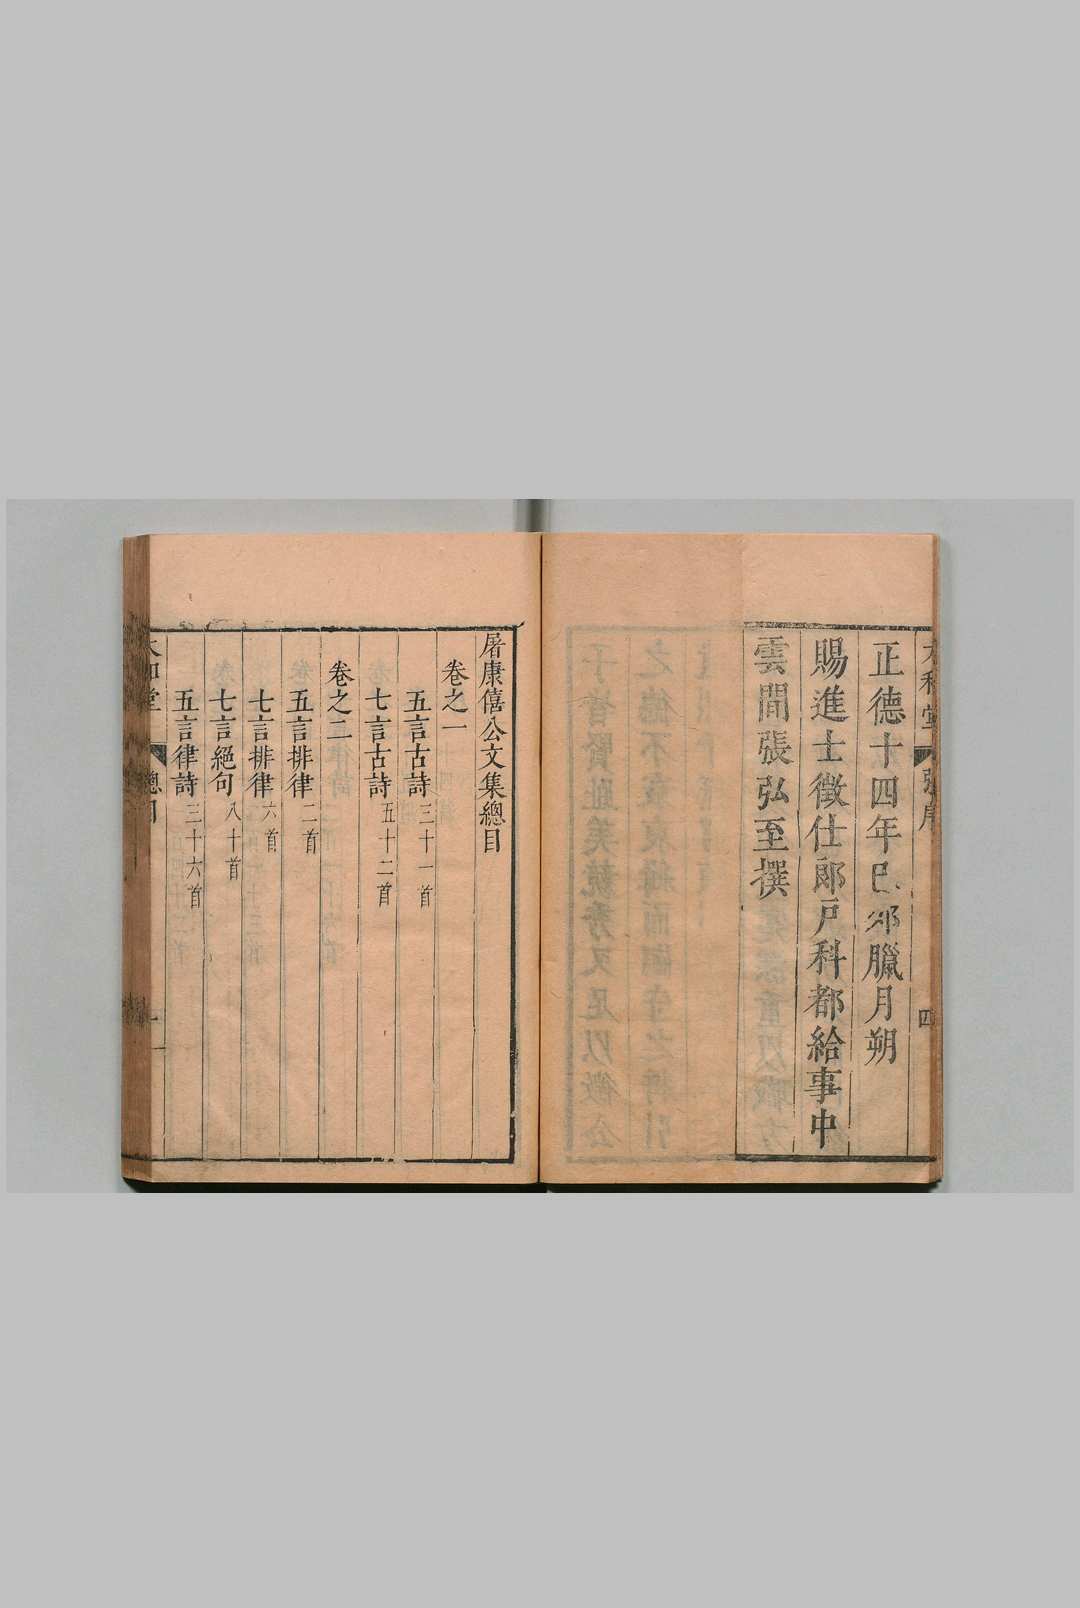 正德十四年己卯臘月朔
賜進士徵仕郎戶科都給事中
雲間張弘至撰
四
屠康僖公文集總目
卷之一
五言古詩三十一首
七言古詩五十二首
卷之二
五言排律二首
七言排律六首
七言絕句八十首
五言律詩三十六首
太和堂
總目
一